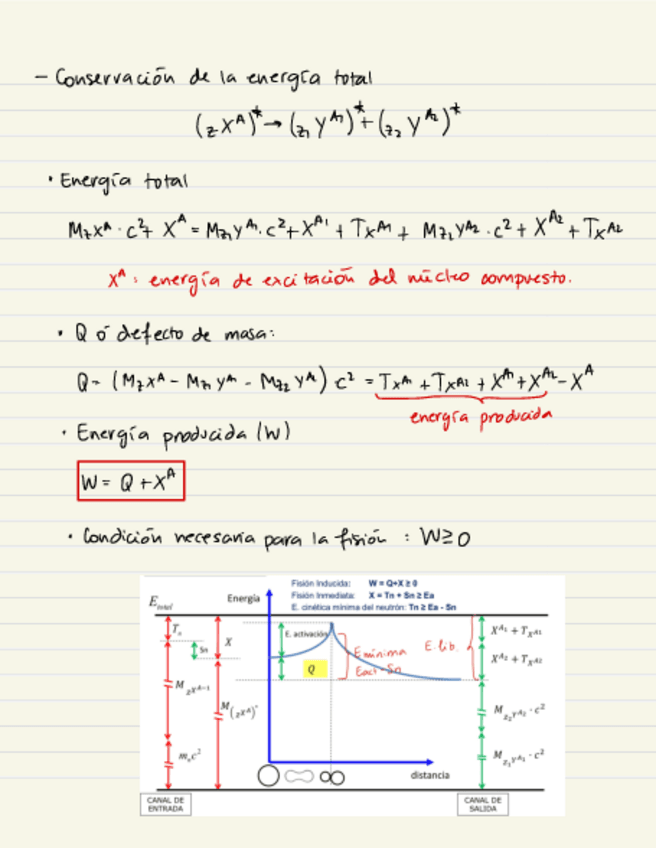 - Conservación de la energía total
(zX^A)* → (z₁Y^A₁)* + (z₂Y^A₂)*
· Energía total
M_zX^A · c² + X^A = M_z₁Y^A₁ · c² + X^A₁ + T_X^A₁ + M_z₂Y^A₂ · c² + X^A₂ + T_X^A₂
X^A : energía de excitación del núcleo compuesto.
· Q ó defecto de masa:
Q = (M_zX^A - M_z₁Y^A₁ - M_z₂Y^A₂) c² = T_X^A₁ + T_X^A₂ + X^A₁ + X^A₂ - X^A
energía producida
· Energía producida (W)
W = Q + X^A
· Condición necesaria para la fisión : W ≥ 0
Fisión Inducida: W = Q+X ≥ 0
Fisión Inmediata: X = Tn + Sn ≥ Ea
E. cinética mínima del neutrón: Tn ≥ Ea - Sn
E_total
Energía
T_n
Sn
X
E. activación
Q
E mínima
Eact - Sn
E. lib.
X^A₁ + T_X^A₁
X^A₂ + T_X^A₂
M_zX^A-1
M_(zX^A)*
M_z₂Y^A₂ · c²
m_n c²
M_z₁Y^A₁ · c²
distancia
CANAL DE
ENTRADA
CANAL DE
SALIDA